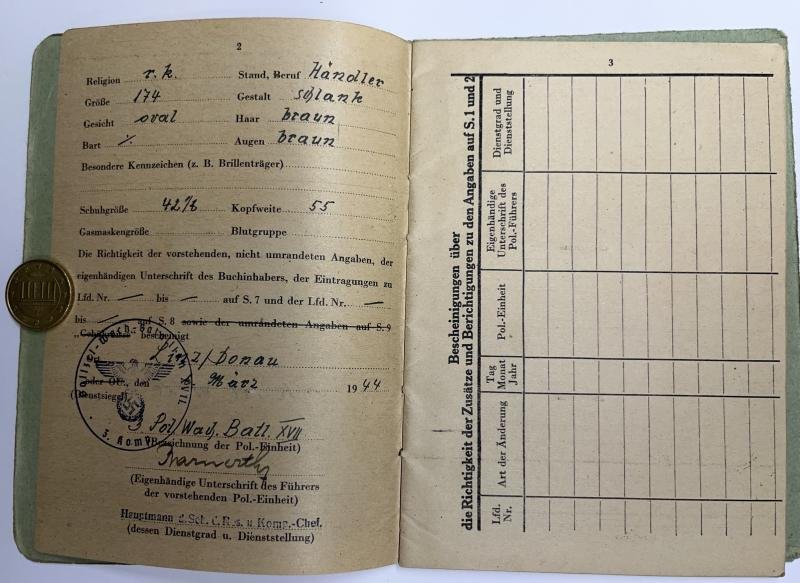 2
Religion r. k. Stand, Beruf Händler
Größe 174 Gestalt schlank
Gesicht oval Haar braun
Bart ./. Augen braun
Besondere Kennzeichen (z. B. Brillenträger)
Schuhgröße 42½ Kopfweite 55
Gasmaskengröße Blutgruppe
Die Richtigkeit der vorstehenden, nicht umrandeten Angaben, der
eigenhändigen Unterschrift des Buchinhabers, der Eintragungen zu
Lfd. Nr. — bis — auf S. 7 und der Lfd. Nr. —
bis — auf S. 8 sowie der umrandeten Angaben auf S. 9
bescheinigt
Linz/Donau
oder OU., den März 1944
(Dienstsiegel)
3. Komp.
3 Pol/Wach. Batl. XVII
(Bezeichnung der Pol.-Einheit)
(Eigenhändige Unterschrift des Führers
der vorstehenden Pol.-Einheit)
Hauptmann d.Sch.d.R. u. Komp.-Chef.
(dessen Dienstgrad u. Dienststellung)
3
Bescheinigungen über
die Richtigkeit der Zusätze und Berichtigungen zu den Angaben auf S. 1 und 2
Lfd.
Nr.
Art der Änderung
Tag
Monat
Jahr
Pol.-Einheit
Eigenhändige
Unterschrift des
Pol.-Führers
Dienstgrad und
Dienststellung